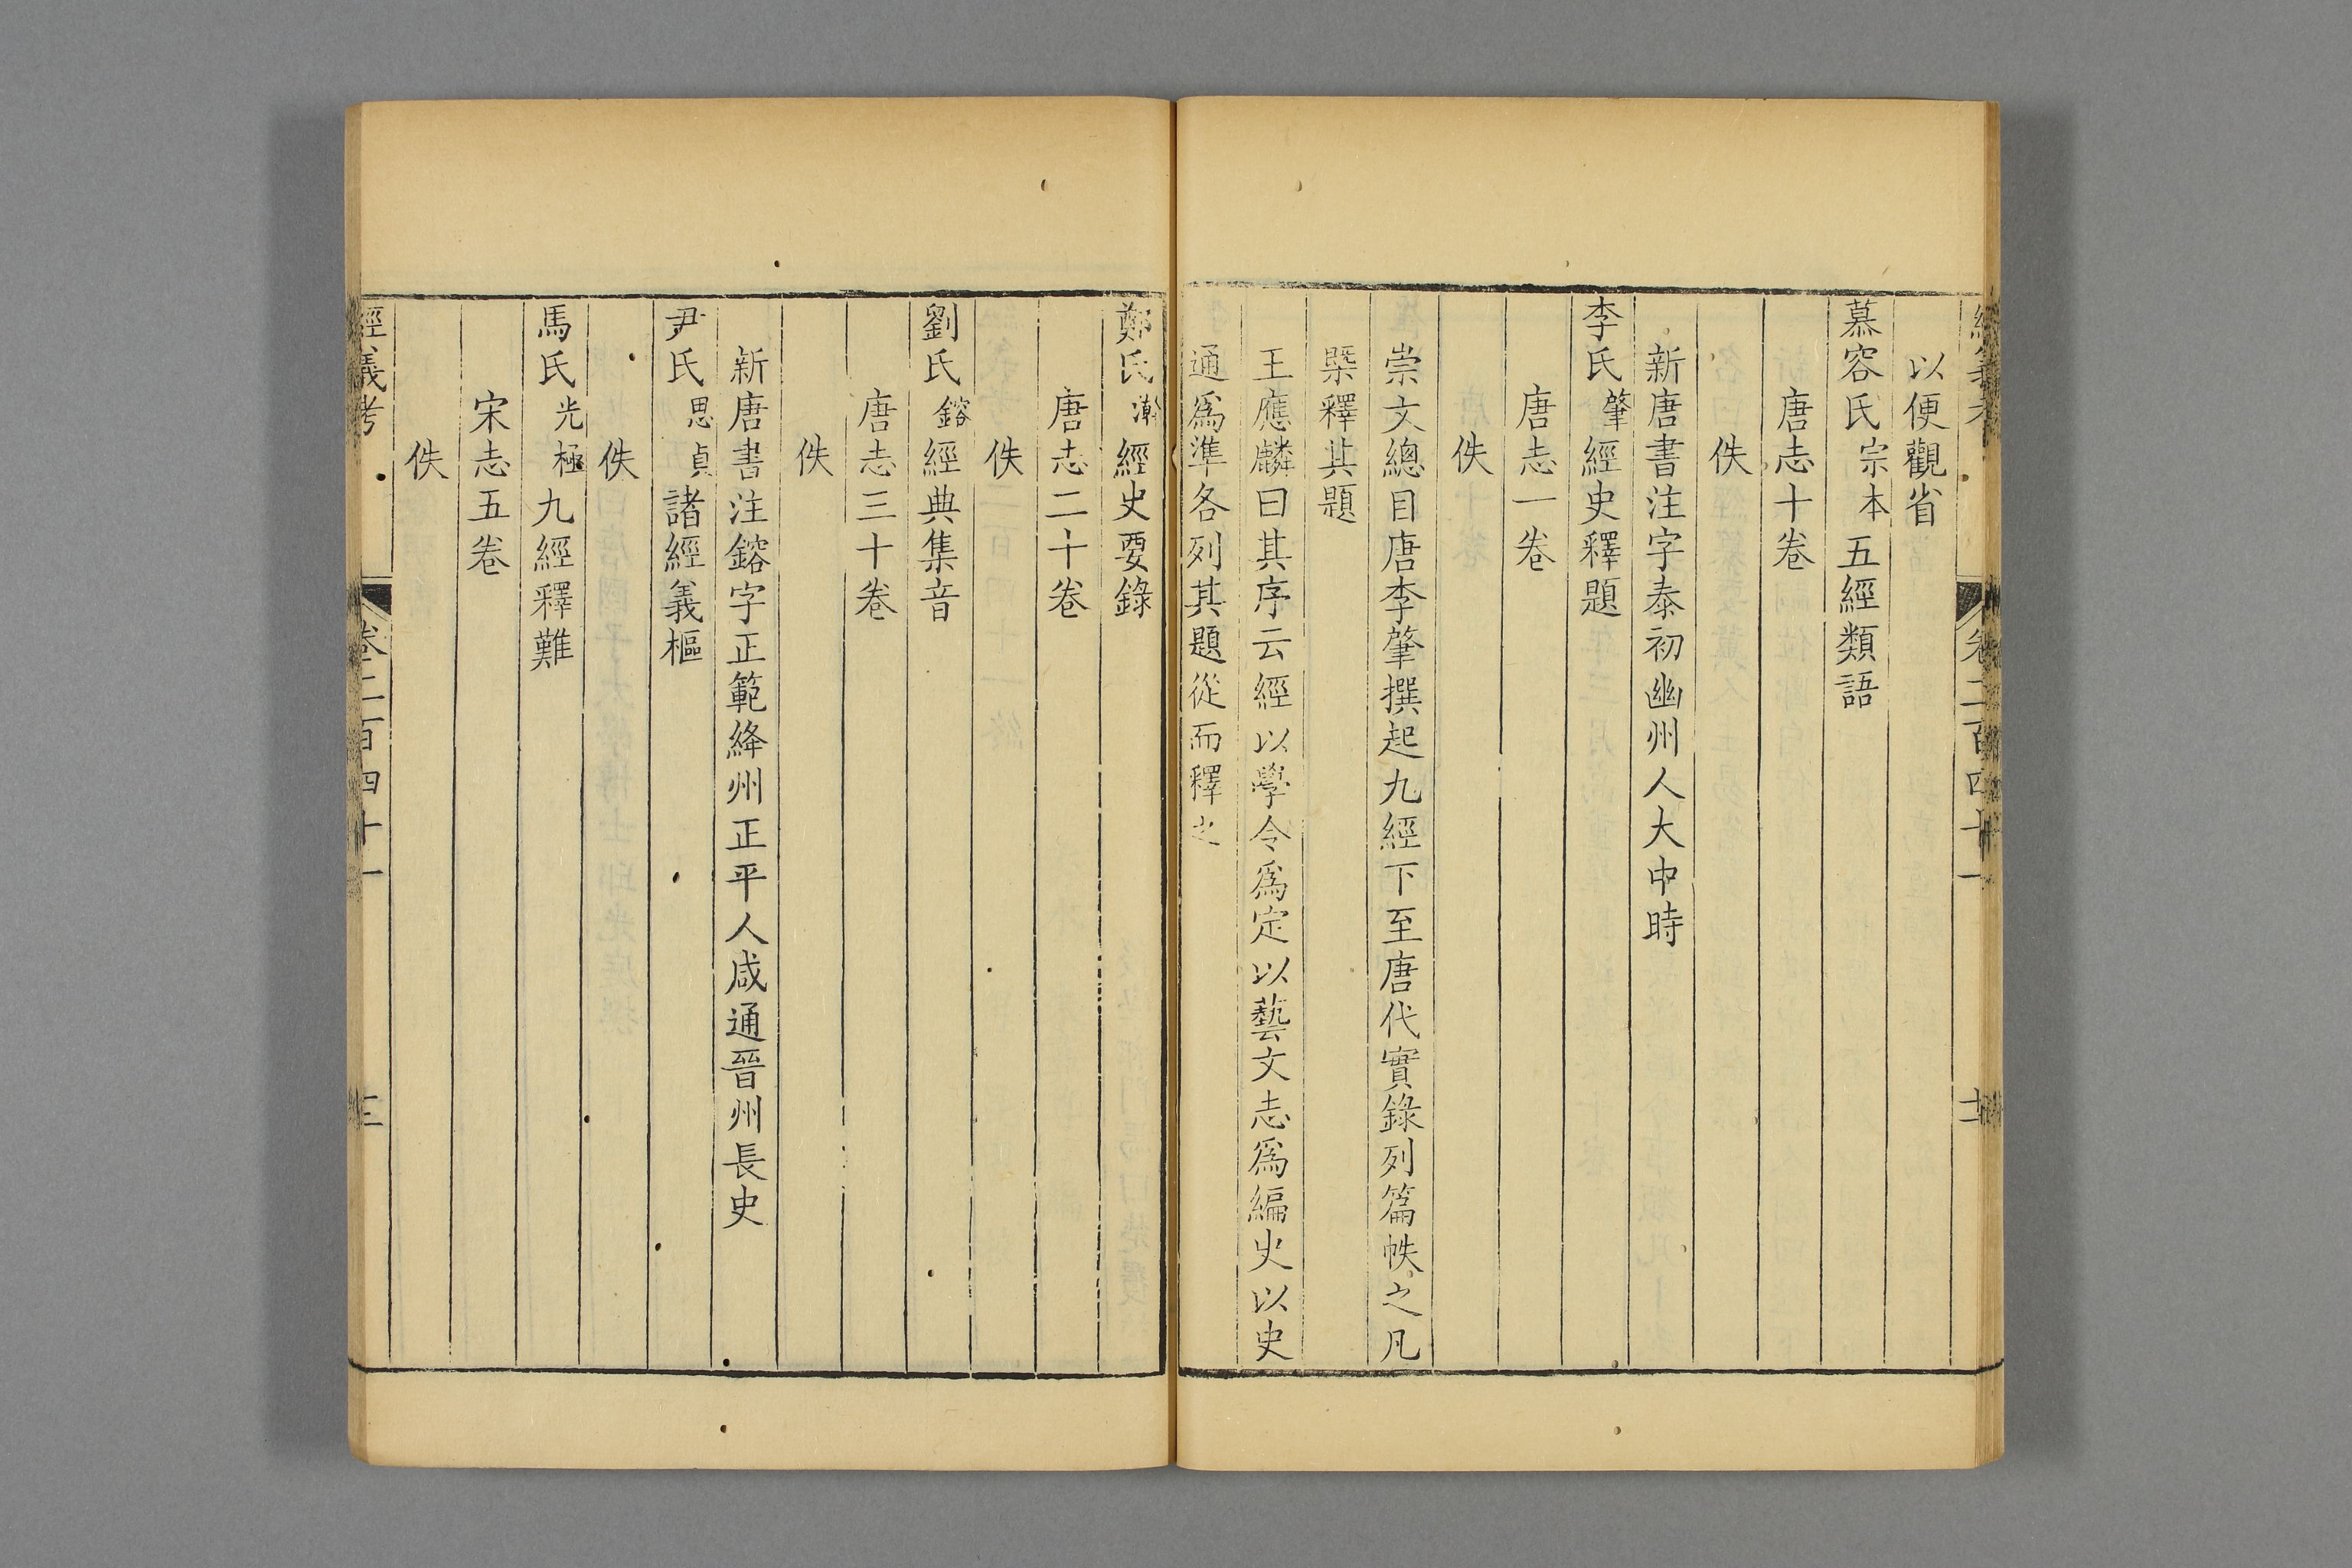 以便觀省
慕容氏宗本五經類語
唐志十卷
佚
新唐書注字泰初幽州人大中時
李氏肇經史釋題
唐志一卷
佚
崇文總目唐李肇撰起九經下至唐代實錄列篇帙之凡
槩釋其題
王應麟曰其序云經以學令爲定以藝文志爲編史以史
通爲準各列其題從而釋之
鄭氏澣經史要錄
唐志二十卷
佚
劉氏鎔經典集音
唐志三十卷
佚
新唐書注鎔字正範絳州正平人咸通晉州長史
尹氏思貞諸經義樞
佚
馬氏光極九經釋難
宋志五卷
佚
經義考 卷二百四十一